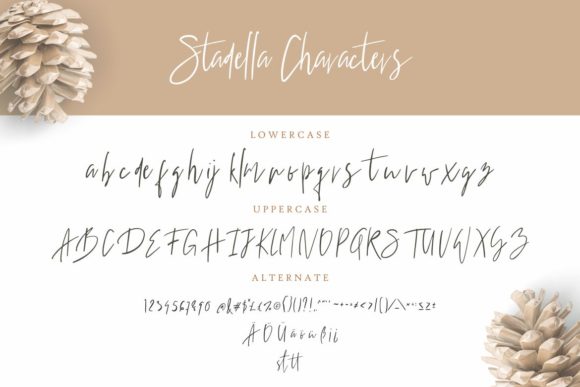 Stadella Characters
LOWERCASE
a b c d e f g h i j k l m n o p q r s t u v w x y z
UPPERCASE
A B C D E F G H I J K L M N O P Q R S T U V W X Y Z
ALTERNATE
1 2 3 4 5 6 7 8 9 0